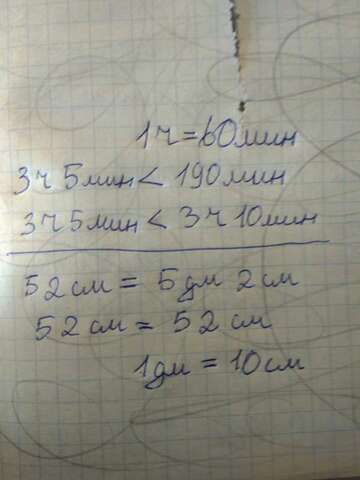 1ч=60мин
3ч 5мин < 190мин
3ч 5мин < 3ч 10мин
52см = 5дм 2см
52см = 52см
1дм = 10см